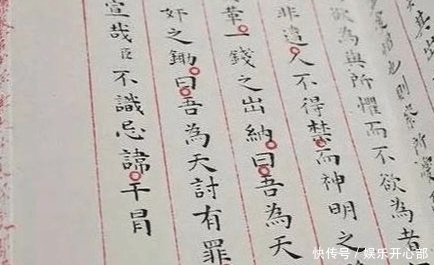 欲為與所懼而不欲為者
人不得禁而神明之
一錢之出納曰吾為天
奸之鋤曰吾為天討有罪
宣哉臣不識忌諱干冒
快传号 / 娱乐开心部